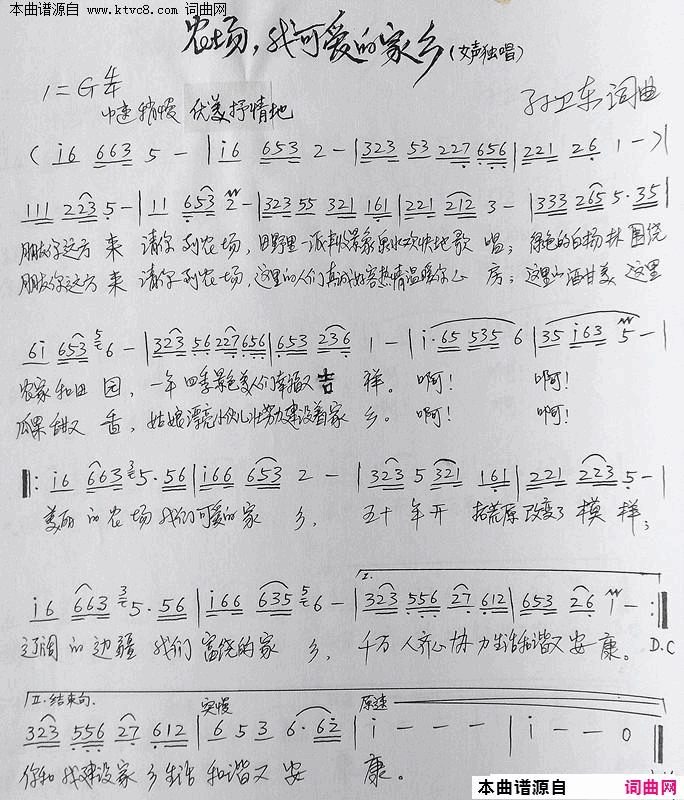 本曲谱源自 www.ktvc8.com 词曲网
农场，我可爱的家乡（女声独唱）
1=G 4/4
中速稍慢 优美抒情地
孙卫东 词曲
( i6 663 5 - | i6 653 2 - | 323 53 227 656 | 221 26 1 - )
111 223 5 - | 11 653 2 - | 323 55 321 161 | 221 212 3 - | 333 265 5·35 |
朋友你远方 来 请你到农场，田野里一派丰收景象泉水欢快地歌 唱；绿色的白杨林围绕
朋友你远方 来 请你到农场，这里的人们真诚好客热情温暖你心 房；这里的酒甘美 这里
6i 653 6 - | 323 56 227 656 | 653 236 1 - | i·65 535 6 | 35 i63 5 - |
农家和田 园，一年四季景色美人们幸福又吉 祥。啊！ 啊！
瓜果甜又 香，姑娘漂亮小伙儿壮努力建设着家 乡。啊！ 啊！
i6 663 5·56 | i66 653 2 - | 323 5 321 161 | 221 223 5 - |
美丽 的农场 我们可爱的家 乡，五十 年开 拓荒原改变了模 样；
i6 663 5·56 | i66 635 6 - | 323 556 27 612 | 653 26 i - :|
辽阔 的边疆 我们富饶的家 乡，千万 人齐心协力生活和谐又安 康。 D.C
II.结束句. 突慢 原速
323 556 27 612 | 6 5 3 6·62 | i - - - | i - - 0
你和我建设家乡生活 和谐又 安 康。
本曲谱源自 词曲网